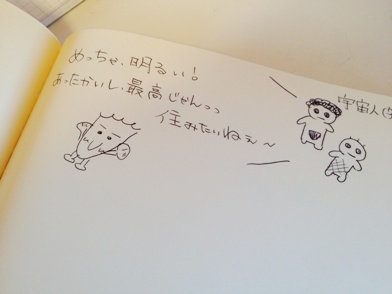 めっちゃ、明るい!
あったかいし、最高じゃんっっ
住みたいねぇ〜
宇宙人